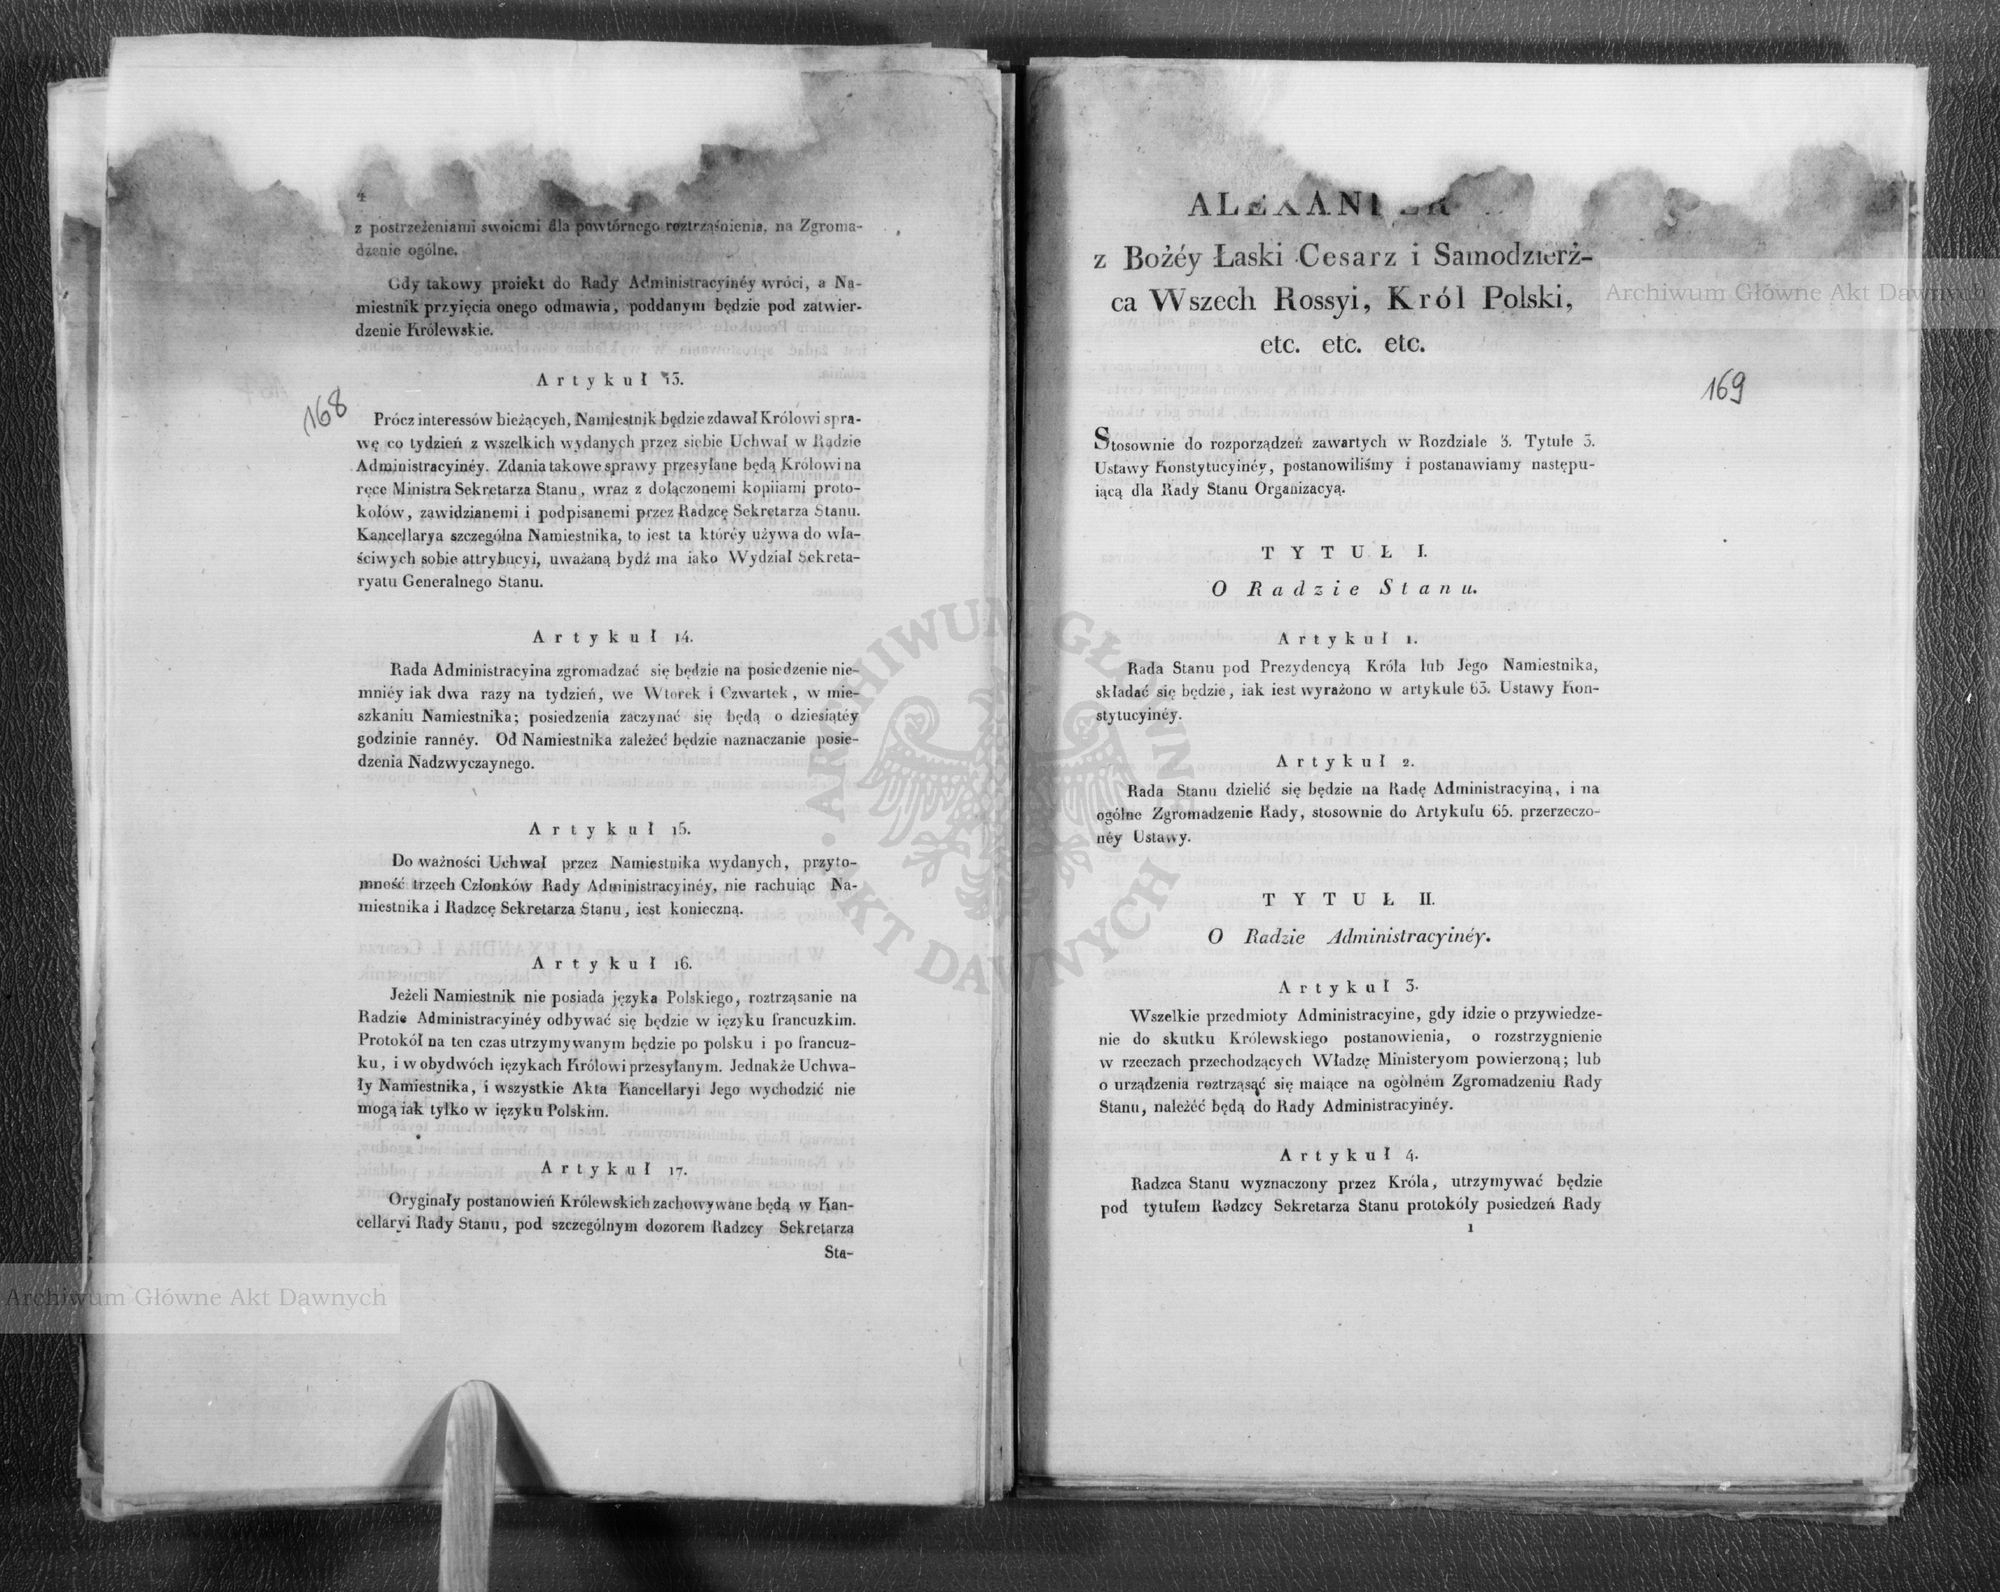 4
z postrzeżeniami swoiemi dla powtórnego roztrząśnienia, na Zgroma-
dzenie ogólne.
Gdy takowy proiekt do Rady Administracyinéy wróci, a Na-
miestnik przyięcia onego odmawia, poddanym będzie pod zatwier-
dzenie Królewskie.
Artykuł 13.
168
Prócz interessów bieżących, Namiestnik będzie zdawał Królowi spra-
wę co tydzień z wszelkich wydanych przez siebie Uchwał w Radzie
Administracyinéy. Zdania takowe sprawy przesyłane będą Królowi na
ręce Ministra Sekretarza Stanu, wraz z dołączonemi kopiiami proto-
kołów, zawidzianemi i podpisanemi przez Radzcę Sekretarza Stanu.
Kancellarya szczególna Namiestnika, to iest ta któréy używa do wła-
ściwych sobie attrybucyi, uważaną bydź ma iako Wydział Sekreta-
ryatu Generalnego Stanu.
Artykuł 14.
Rada Administracyina zgromadzać się będzie na posiedzenie nie-
mniéy iak dwa razy na tydzień, we Wtorek i Czwartek, w mie-
szkaniu Namiestnika; posiedzenia zaczynać się będą o dziesiątéy
godzinie rannéy. Od Namiestnika zależeć będzie naznaczanie posie-
dzenia Nadzwyczaynego.
Artykuł 15.
Do ważności Uchwał przez Namiestnika wydanych, przyto-
mność trzech Członków Rady Administracyinéy, nie rachuiąc Na-
miestnika i Radzcę Sekretarza Stanu, iest konieczną.
Artykuł 16.
Jeżeli Namiestnik nie posiada języka Polskiego, roztrząsanie na
Radzie Administracyinéy odbywać się będzie w ięzyku francuzkim.
Protokół na ten czas utrzymywanym będzie po polsku i po francuz-
ku, i w obydwóch ięzykach Królowi przesyłanym. Jednakże Uchwa-
ły Namiestnika, i wszystkie Akta Kancellaryi Jego wychodzić nie
mogą iak tylko w ięzyku Polskim.
Artykuł 17.
Oryginały postanowień Królewskich zachowywane będą w Kan-
cellaryi Rady Stanu, pod szczególnym dozorem Radzcy Sekretarza
Sta-
ALEXANDER
z Bożéy Łaski Cesarz i Samodzierż-
ca Wszech Rossyi, Król Polski,
etc. etc. etc.
169
Stosownie do rozporządzeń zawartych w Rozdziale 3. Tytule 3.
Ustawy Konstytucyinéy, postanowiliśmy i postanawiamy następu-
iącą dla Rady Stanu Organizacyą.
TYTUŁ I.
O Radzie Stanu.
Artykuł 1.
Rada Stanu pod Prezydencyą Króla lub Jego Namiestnika,
składać się będzie, iak iest wyrażono w artykule 63. Ustawy Kon-
stytucyinéy.
Artykuł 2.
Rada Stanu dzielić się będzie na Radę Administracyiną, i na
ogólne Zgromadzenie Rady, stosownie do Artykułu 65. przerzeczo-
néy Ustawy.
TYTUŁ II.
O Radzie Administracyinéy.
Artykuł 3.
Wszelkie przedmioty Administracyine, gdy idzie o przywiedze-
nie do skutku Królewskiego postanowienia, o rozstrzygnienie
w rzeczach przechodzących Władzę Ministeryom powierzoną; lub
o urządzenia roztrząsąć się maiące na ogólném Zgromadzeniu Rady
Stanu, należéć będą do Rady Administracyinéy.
Artykuł 4.
Radzca Stanu wyznaczony przez Króla, utrzymywać będzie
pod tytułem Radzcy Sekretarza Stanu protokóły posiedzeń Rady
1
Archiwum Główne Akt Dawnych
Archiwum Główne Akt Dawnych
ARCHIWUM GŁÓWNE AKT DAWNYCH